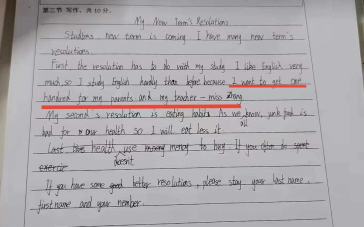 第三节 写作，共10分。
My New Term's Resolutions
Students, new term is coming I have many new term's
resolutions.
First the resolution has to do with my study I like English very
much, so I study English hardly than before because I want to get one
hundred for my parents and my teacher - miss
My second's resolution is eating habits As we all know, junk food is
bad for our health so I will eat less it.
Last health use money to buy If you
doesnt
exercise
If you have some good better resolutions, please stay your last name,
first name and your number.